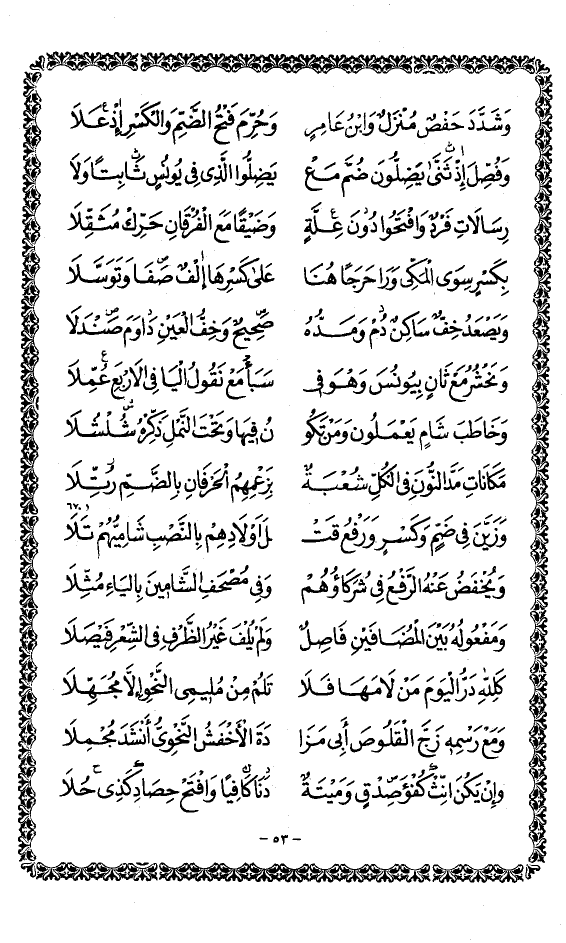 وَشَدَّدَ حَفْصٌ مُنْزَلٌ وَابْنُ عَامِرٍ وَحُرِّمَ فَتْحُ الضَّمِّ وَالْكَسْرِ إِذْ عَلَا
وَفُصِّلَ إِذْ ثَنَّى يَضِلُّونَ ضُمَّ مَعْ يَضِلُّوا الَّذِي فِي يُونُسٍ ثَابِتًا وَلَا
رِسَالَاتِ فَرْدٌ وَافْتَحُوا دُونَ عِلَّةٍ وَضَيْقًا مَعَ الْفُرْقَانِ حَرِّكْ مُثَقِّلَا
بِكَسْرٍ سِوَى الْمَكِّي وَرَا حَرَجًا هُنَا عَلَى كَسْرِهَا إِلْفٌ صَفَا وَتَوَسَّلَا
وَيَصْعَدُ خِفٌّ سَاكِنٌ دُمْ وَمَدُّهُ صَحِيحٌ وَخِفُّ الْعَيْنِ دَاوَمَ صَنْدَلَا
وَنَحْشُرُ مَعْ ثَانٍ بِيُونُسَ وَهُوَ فِي سَبَأْ مَعْ نَقُولُ الْيَا فِي الْأَرْبَعِ عُمِّلَا
وَخَاطَبَ شَامٍ يَعْمَلُونَ وَمَنْ تَكُو نُ فِيهَا وَتَحْتَ النَّمْلِ ذَكِّرْهُ شُلْشُلَا
مَكَانَاتِ مَدَّ النُّونَ فِي الْكُلِّ شُعْبَةٌ بِزَعْمِهِمُ الْحَرْفَانِ بِالضَّمِّ رُتِّلَا
وَزَيَّنَ فِي ضَمٍّ وَكَسْرٍ وَرَفْعُ قَتْ لَ أَوْلَادِهِمْ بِالنَّصْبِ شَامِيُّهُمْ تَلَا
وَيُخْفَضُ عَنْهُ الرَّفْعُ فِي شُرَكَاؤُهُمْ وَفِي مُصْحَفِ الشَّامِينَ بِالْيَاءِ مُثِّلَا
وَمَفْعُولُهُ بَيْنَ الْمُضَافَيْنِ فَاصِلٌ وَلَمْ يُلْفَ غَيْرُ الظَّرْفِ فِي الشِّعْرِ فَيْصَلَا
كَلِلَّهِ دَرُّ الْيَوْمَ مَنْ لَامَهَا فَلَا تَلُمْ مِنْ مُلِيمِي النَّحْوِ إِلَّا مُجَهِّلَا
وَمَعْ رَسْمِهِ زَجَّ الْقَلُوصَ أَبِي مَزَا دَةَ الْأَخْفَشُ النَّحْوِيُّ أَنْشَدَ مُجْمِلَا
وَإِنْ يَكُنَ انِّثْ كُفْؤَ صِدْقٍ وَمَيْتَةٌ دَنَا كَافِيًا وَافْتَحْ حِصَادِ كَذِي حُلَا
- ٥٣ -